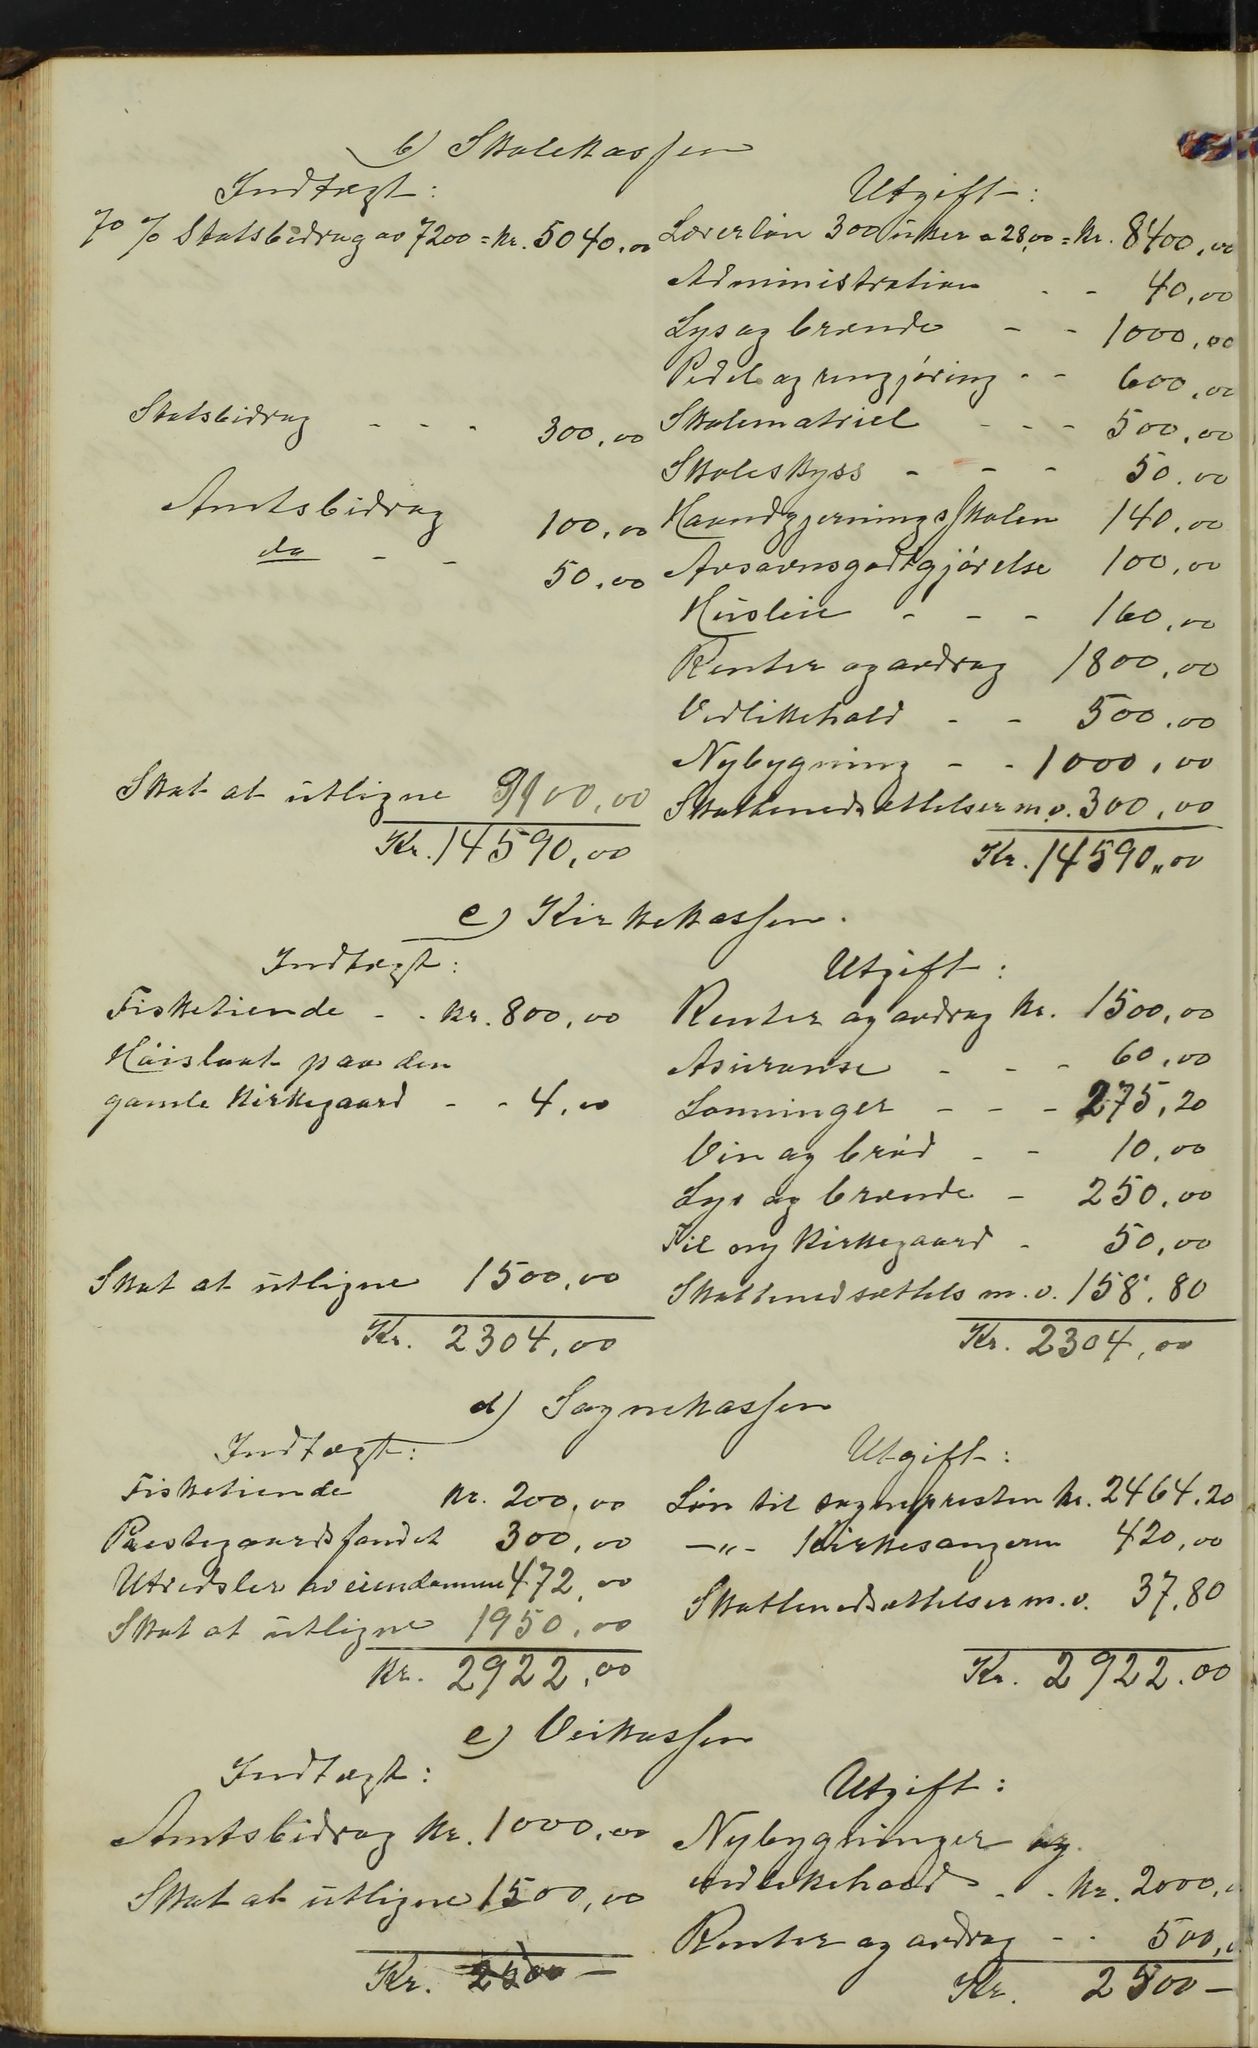 b) Skolekassen
Indtægt:
70 % Statsbidrag av 7200 = Kr. 5040,00
Statsbidrag - - - 300,00
Amtsbidrag 100,00
do - - 50,00
Skat at utligne 9100,00
Kr. 14590,00
Utgift:
Lærerløn 300 uker a 28,00 = Kr. 8400,00
Administration - - 40,00
Lys og brænde - - 1000,00
Pedel og rengjøring - - 600,00
Skolematriel - - - 500,00
Skoleskyss - - - 50,00
Haandgjerningsskolen 140,00
Avsavnsgodtgjørelse 100,00
Husleie - - - 160,00
Renter og avdrag 1800,00
Vedlikehold - - 500,00
Nybygning - - 1000,00
Skattenedsættelser m.v. 300,00
Kr. 14590,00
c) Kirkekassen.
Indtægt:
Fisketiende - - Kr. 800,00
Høislaat paa den
gamle Kirkegaard - - 4,00
Skat at utligne 1500,00
Kr. 2304,00
Utgift:
Renter og avdrag Kr. 1500,00
Asuranse - - - 60,00
Lønninger - - - 275,20
Vin og brød - - 10,00
Lys og brænde - 250,00
Til ny Kirkegaard - 50,00
Skattenedsættels m.v. 158,80
Kr. 2304,00
d) Sognekassen
Indtægt:
Fisketiende Kr. 200,00
Præstegaardsfondet 300,00
Utredsler av eiendomme 472,00
Skat at utligne 1950,00
Kr. 2922,00
Utgift:
Løn til sognepresten Kr. 2464,20
-"- Kirkesangeren 420,00
Skattenedsættelser m.v. 37,80
Kr. 2922.00
e) Veikassen
Indtægt:
Amtsbidrag Kr. 1000,00
Skat at utligne 1500,00
Kr. 2500 -
Utgift:
Nybygninger og
vedlikehold - - Kr. 2000,
Renter og avdrag - - 500,
Kr. 2500 -